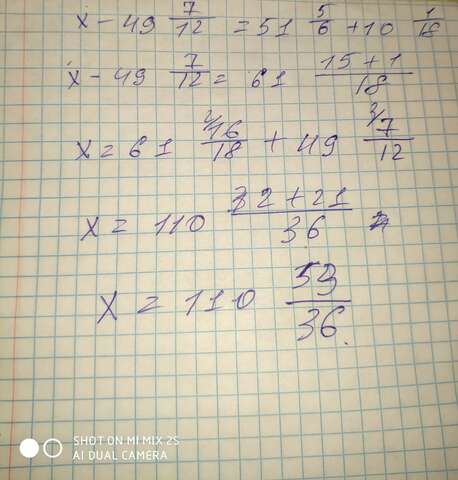 x - 49 7/12 = 51 5/6 + 10 1/18
x - 49 7/12 = 61 15+1/18
x = 61 2/16/18 + 49 3/7/12
x = 110 32+21/36
x = 110 53/36
SHOT ON MI MIX 2S
AI DUAL CAMERA